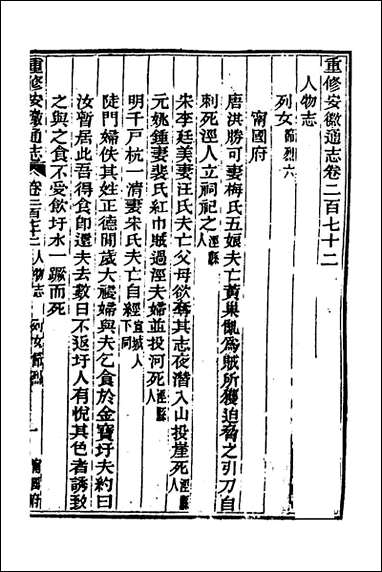 重修安徽通志卷二百七十二
人物志
列女節烈六
甯國府
唐洪勝可妻梅氏五娘夫亡黃巢亂為賊所獲迫脅之引刀自
刺死涇人立祠祀之涇縣人
宋李廷美妻汪氏夫亡父母欲奪其志夜潛入山投崖死涇縣人
元姚鍾妻裴氏紅巾賊過涇夫婦並投河死涇縣人
明千戶杭一清妻宋氏夫亡自經宣城人下同
陡門婦佚其姓正德間歲大祲婦與夫乞食於金寶圩夫約曰
汝暫居此吾得食即還夫去數日不返圩人有悅其色者誘致
之與之食不受飲圩水一蹶而死
重修安徽通志 卷二百七十二 人物志 列女節烈 一 甯國府